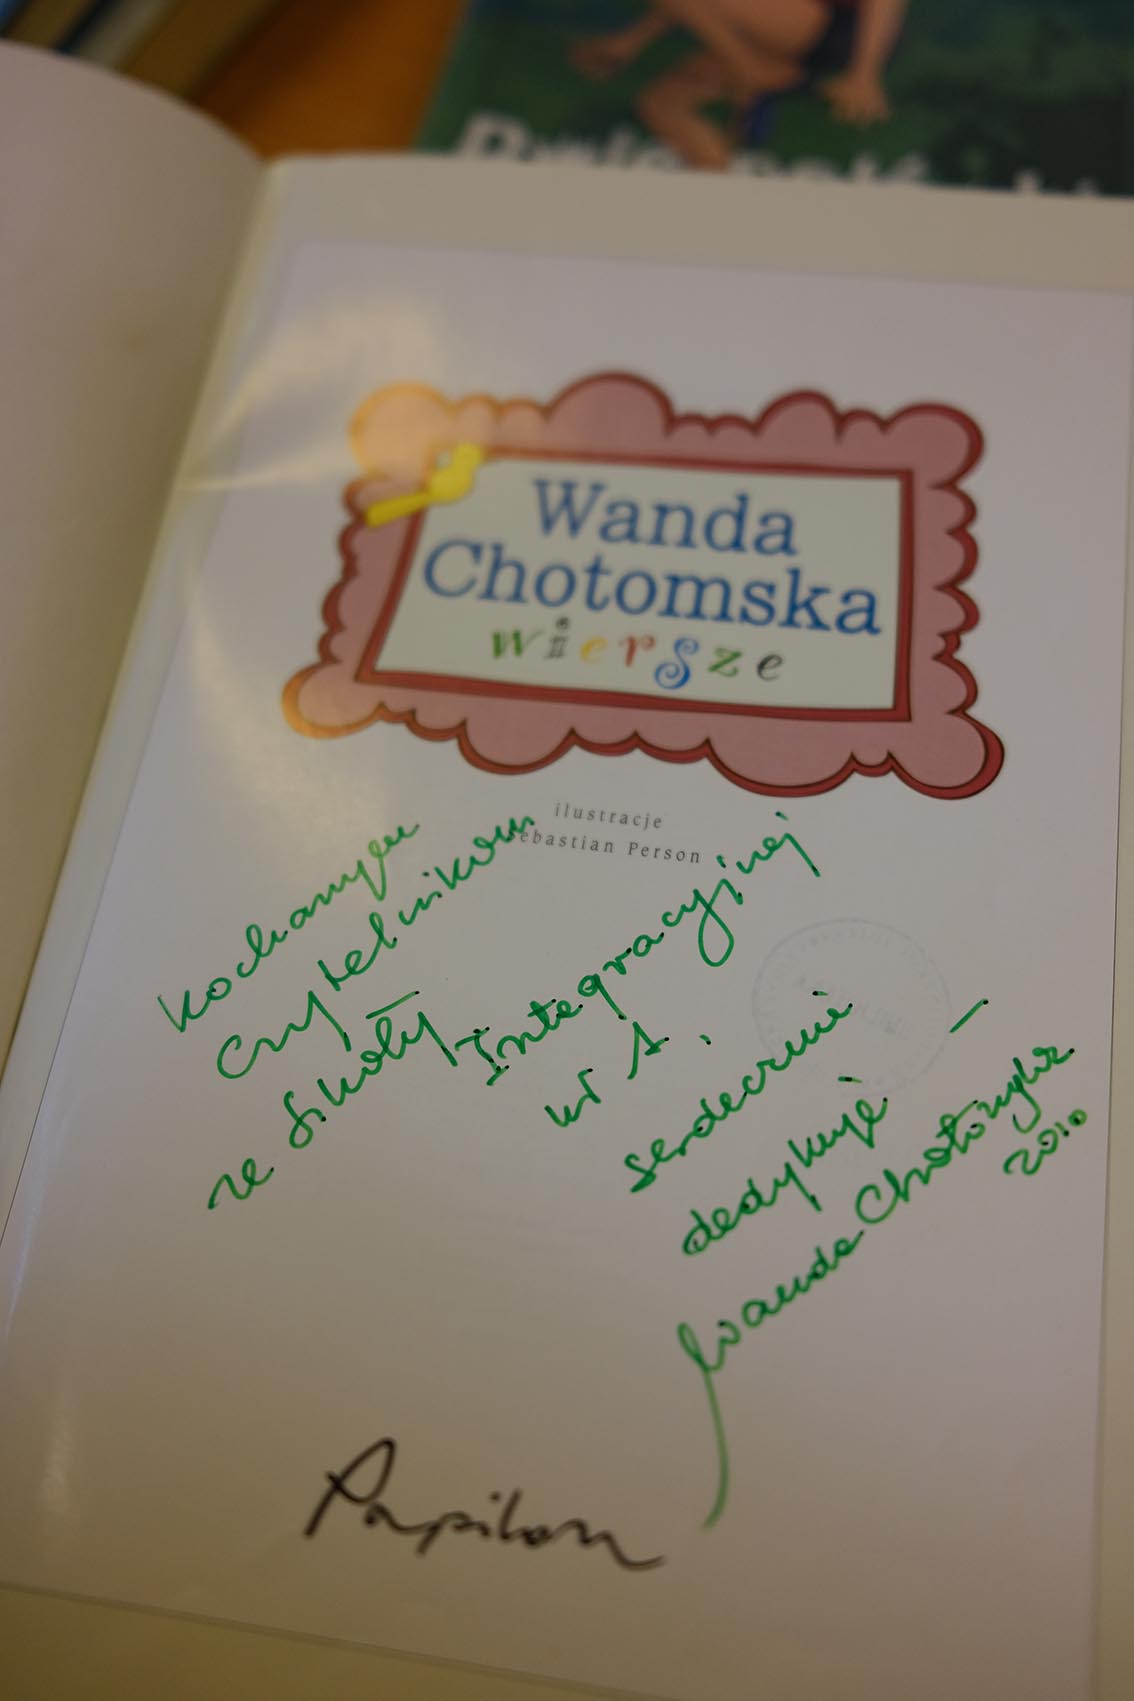 Wanda
Chotomska
wiersze
ilustracje
Sebastian Person
Kochanym
Czytelnikom
ze Szkoły Integracyjnej
nr 1.
serdecznie
dedykuję —
Wanda Chotomska
2010
Papilon